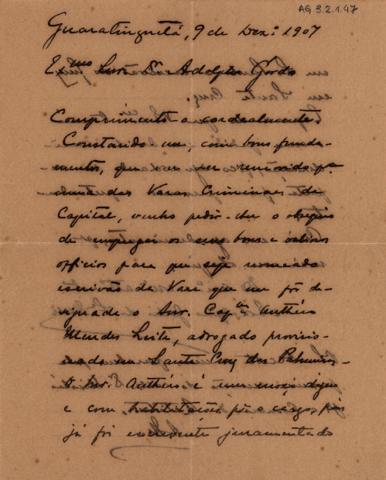 AG 3.2.1.47
Guaratinguetá, 9 de Dez. 1907
Exmo Snr. Dr. Adolpho Gordo
Comprimento-o cordealmente.
Constando-me, com bons funda-
mentos, que vou ser removido pa.
uma das Varas Criminaes da
Capital, venho pedir-lhe o obsequio
de empregar os seus bons e valiosos
officios para que seja nomeado
escrivão da Vara que me fôr de-
signada o Snr. Capm. Anthero
Mendes Leite, advogado provisio-
nado em Santa Cruz das Palmeiras.
O Snr. Anthero é um moço digno
e com habilitações pa. o cargo, pois
já foi escrevente juramentado